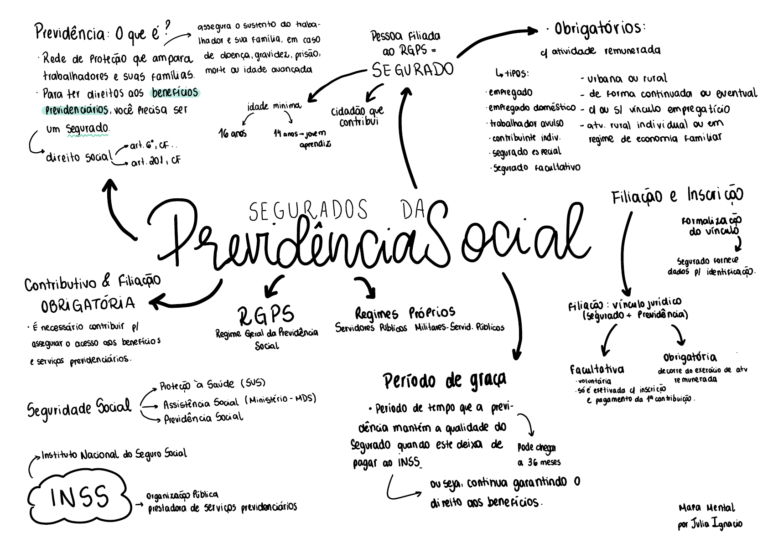 Previdência: O que é?
· Rede de Proteção que ampara
trabalhadores e suas famílias.
· Para ter direitos aos benefícios
Previdenciários, você precisa ser
um segurado.
direito social
art. 6º, CF..
art. 201, CF
assegura o sustento do traba-
lhador e sua família, em caso
de doença, gravidez, prisão,
morte ou idade avançada
Pessoa Filiada
ao RGPS =
SEGURADO
idade mínima
16 anos
14 anos → jovem
aprendiz
Cidadão que
contribui
· Obrigatórios:
c/ atividade remunerada
↳ tipos:
· empregado
· empregado doméstico
· trabalhador avulso
· contribuinte indiv.
· segurado especial
· Segurado Facultativo
- urbana ou rural
- de forma continuada ou eventual
- c/ ou s/ vínculo empregatício
- atv. rural individual ou em
regime de economia familiar
SEGURADOS DA
Previdência Social
Filiação e Inscrição
Formalização
do vínculo
Segurado fornece
dados p/ identificação.
Filiação: vínculo jurídico
(segurado + Previdência)
Facultativa
· voluntária
· só é efetivada c/ inscrição
e pagamento da 1ª contribuição.
Obrigatória
decorre do exercício de atv
remunerada
Contributivo & Filiação
OBRIGATÓRIA
· É necessário contribuir p/
assegurar o acesso aos benefícios
e serviços previdenciários.
RGPS
Regime Geral da Previdência
Social
Regimes Próprios
Servidores Públicos Militares-Servid. Públicos
Seguridade Social
Proteção à Saúde (SUS)
Assistência Social (Ministério-MDS)
Previdência Social
Período de graça
· Período de tempo que a previ-
dência mantém a qualidade do
Segurado quando este deixa de
pagar ao INSS.
Pode chegar
a 36 meses
ou seja, continua garantindo o
direito aos benefícios.
Instituto Nacional do Seguro Social
INSS
Organização Pública
prestadora de serviços previdenciários
Mapa Mental
por Julia Ignacio